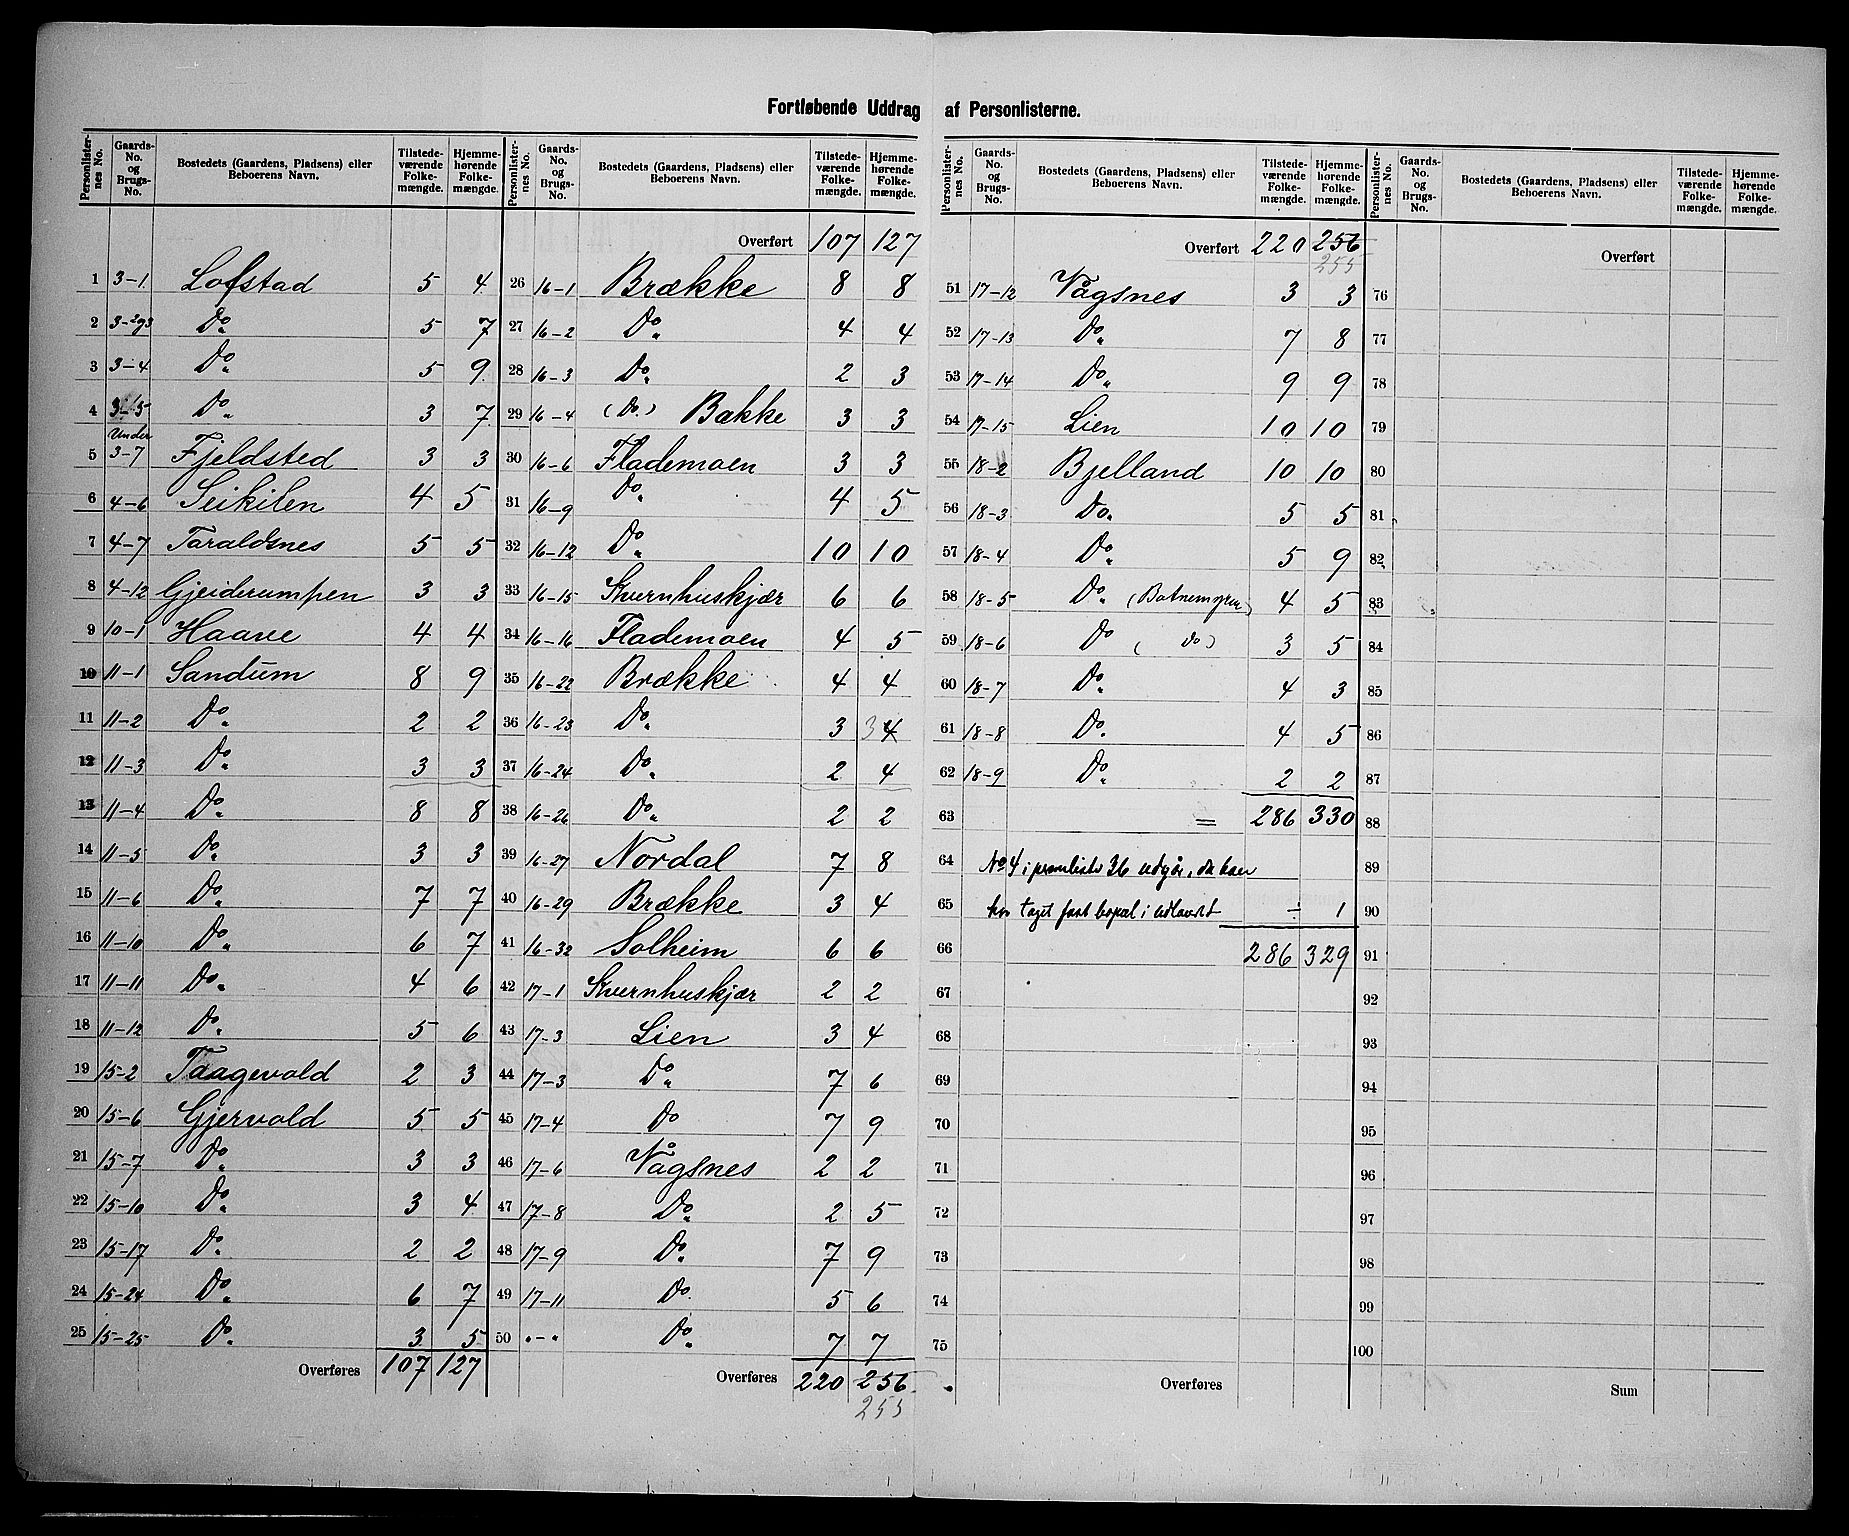 Fortløbende Uddrag af Personlisterne.
Personlisternes No. | Gaards-No. og Brugs-No. | Bostedets (Gaardens, Pladsens) eller Beboerens Navn. | Tilstedeværende Folkemængde. | Hjemmehørende Folkemængde.
1 3-1 Lofstad 5 4
2 3-2g3 Do 5 7
3 3-4 Do 5 9
4 3-15 Do 3 7
5 Under 3-7 Fjeldsted 3 3
6 4-6 Seikilen 4 5
7 4-7 Taraldsnes 5 5
8 4-12 Gjeiderumpen 3 3
9 10-1 Haave 4 4
10 11-1 Sandum 8 9
11 11-2 Do 2 2
12 11-3 Do 3 3
13 11-4 Do 8 8
14 11-5 Do 3 3
15 11-6 Do 7 7
16 11-10 Do 6 7
17 11-11 Do 4 6
18 11-12 Do 5 6
19 15-2 Taagevold 2 3
20 15-6 Gjervold 5 5
21 15-7 Do 3 3
22 15-10 Do 3 4
23 15-17 Do 2 2
24 15-24 Do 6 7
25 15-25 Do 3 5
Overføres 107 127
Personlisternes No. | Gaards-No. og Brugs-No. | Bostedets (Gaardens, Pladsens) eller Beboerens Navn. | Tilstedeværende Folkemængde. | Hjemmehørende Folkemængde.
Overført 107 127
26 16-1 Brække 8 8
27 16-2 Do 4 4
28 16-3 Do 2 3
29 16-4 (Do.) Bakke 3 3
30 16-6 Flademoen 3 3
31 16-9 Do 4 5
32 16-12 Do 10 10
33 16-15 Kvernhuskjær 6 6
34 16-16 Flademoen 4 5
35 16-22 Brække 4 4
36 16-23 Do 3 3 4
37 16-24 Do 2 4
38 16-26 Do 2 2
39 16-27 Nordal 7 8
40 16-29 Brække 3 4
41 16-32 Solheim 6 6
42 17-1 Kvernhuskjær 2 2
43 17-3 Lien 3 4
44 17-3 Do 7 6
45 17-4 Do 7 9
46 17-6 Vågsnes 2 2
47 17-8 Do 2 5
48 17-9 Do 7 9
49 17-11 Do 5 6
50 "-" Do 7 7
Overføres 220 256
255
Personlisternes No. | Gaards-No. og Brugs-No. | Bostedets (Gaardens, Pladsens) eller Beboerens Navn. | Tilstedeværende Folkemængde. | Hjemmehørende Folkemængde.
Overført 220 256
255
51 17-12 Vågsnes 3 3
52 17-13 Do 7 8
53 17-14 Do 9 9
54 17-15 Lien 10 10
55 18-2 Bjelland 10 10
56 18-3 Do. 5 5
57 18-4 Do 5 9
58 18-5 Do (Botnemyren) 4 5
59 18-6 Do ( Do ) 3 5
60 18-7 Do 4 3
61 18-8 Do. 4 5
62 18-9 Do 2 2
63 = 286 330
64 No 4 i personliste 36 udgår, da han
65 har taget fast bopæl i udlandet ÷ 1
66 286 329
67
68
69
70
71
72
73
74
75
Overføres
Personlisternes No. | Gaards-No. og Brugs-No. | Bostedets (Gaardens, Pladsens) eller Beboerens Navn. | Tilstedeværende Folkemængde. | Hjemmehørende Folkemængde.
Overført
76
77
78
79
80
81
82
83
84
85
86
87
88
89
90
91
92
93
94
95
96
97
98
99
100
Sum